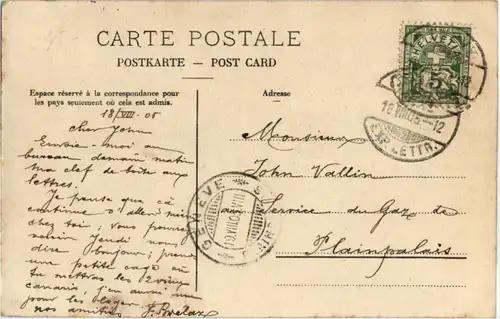 CARTE POSTALE
POSTKARTE — POST CARD
Espace réservé à la correspondance pour
les pays seulement où cela est admis.
Adresse
18/VIII - 05
cher John
Envoie-moi au
bureau demain matin
ma clef de boîte aux
lettres.
Je pense que çà
continue d'aller
chez toi; vous pourrez
Jeudi nous
dire bonjour; prends
une petite cage où
tu mettras les 2 vieux
canaris, j'en aurai
pour les loger
nos amitiés
Monsieur
John Vallin
au Service du Gaz de
Plainpalais
HELVETIA
5
18.VIII.05.-12
EXP. LETTR.
GENÈVE
19.VIII.05